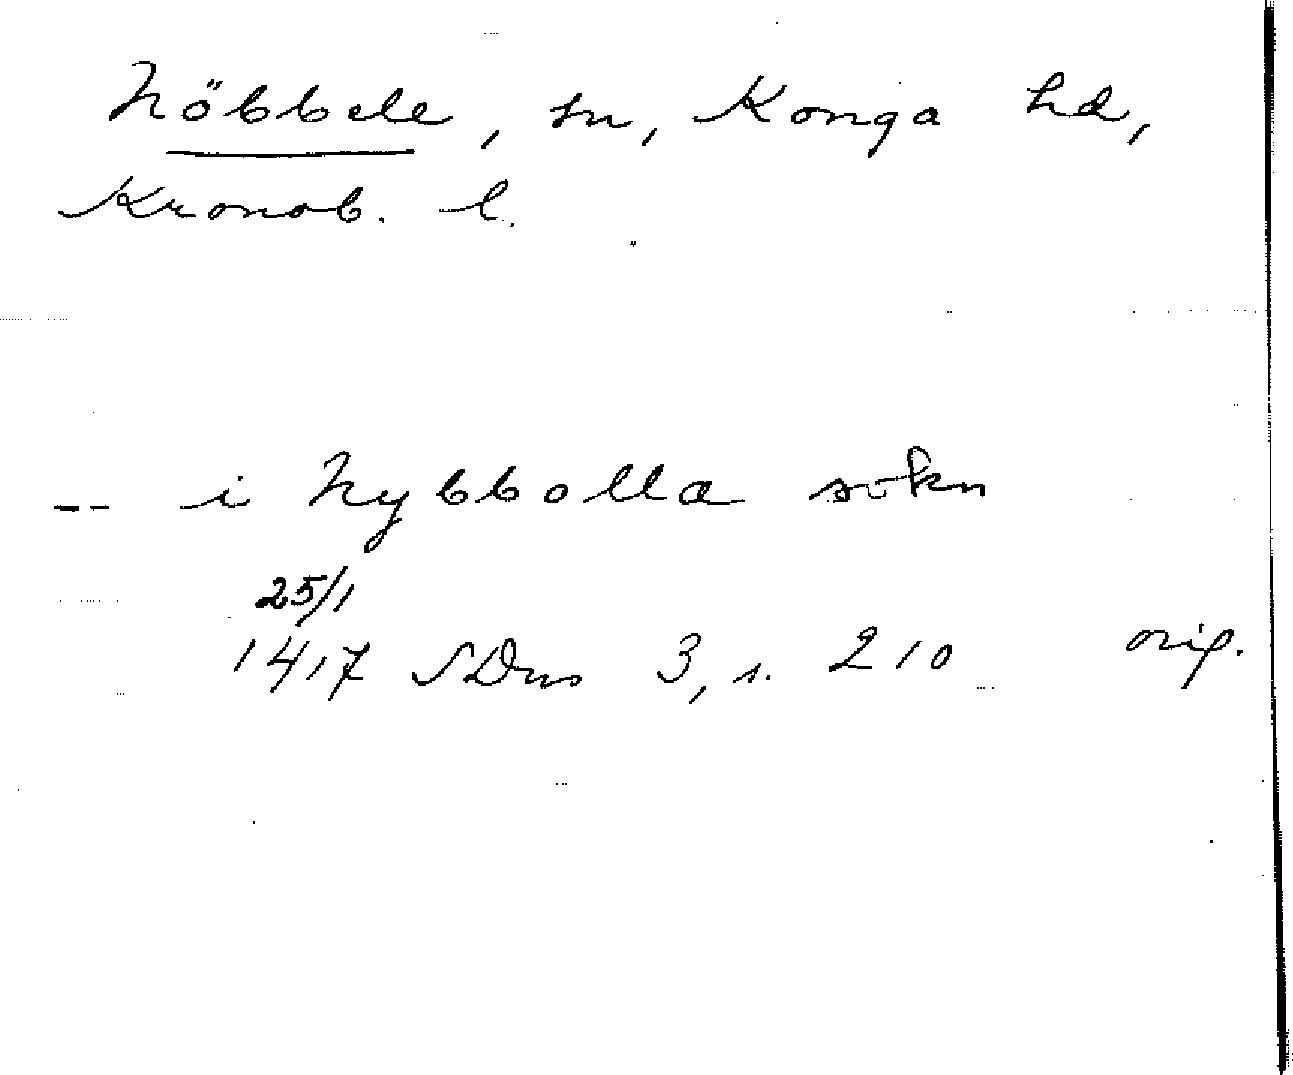 Nöbbele, sn, Konga hd,
Kronob. l.
-- i Nybbolla sokn
25/1
1417 SDns 3, s. 210 orig.